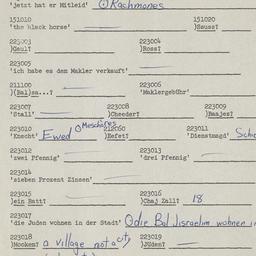 'jetzt hat er Mitleid' ⊙ Rachmones
151010 151020
'the black horse' )Susss?
225003 223004
)Gaul? )Ross?
223005
'ich habe es dem Makler verkauft'
211100 223006
)(Bal)sa...? 'Maklergebühr'
223007 223008 223009
'Stall' )Cheeder? )Baajes?
223010 212060 223011
'Knecht' Ewed ⊙Meschores )Sefet? 'Dienstmagd'
223012 223013
'zwei Pfennig' 'drei Pfennig'
223014
'sieben Prozent Zinsen'
223015 223016
)ein Ratt? )Chaj Zall? 18
223017
'die Juden wohnen in der Stadt' ⊙die Bal Jisraelim wohnen i
223018 223019
)Mockem? a village not a city )Jüden?